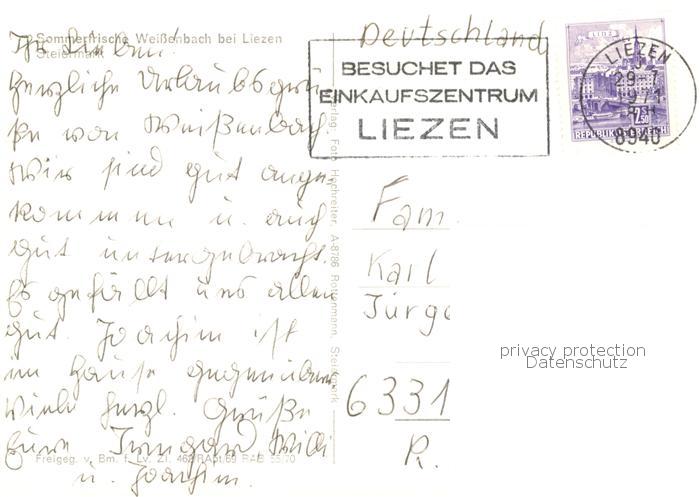 Sommerfrische Weißenbach bei Liezen
Steiermark
Ihr Lieben!
Herzliche Urlaubsgrü
ße von Weißenbach
Wir sind gut ange
kommen u. auch
gut untergebracht.
Es gefällt uns allen
gut. Joachim ist
im Hause gegenüber
Viele herzl. Grüße
Eure Irmgard, Willi
u. Joachim.
Freigeg. v. Bm. f. Lv. Zl.
Verlag: Foto Hochreiter, A-8786 Rottenmann, Steiermark
Deutschland
BESUCHET DAS
EINKAUFSZENTRUM
LIEZEN
LINZ
2.50
REPUBLIK ÖSTERREICH
LIEZEN
29.-7
1971
8940
Fam.
Karl
Jürge
6331
R.
privacy protection
Datenschutz